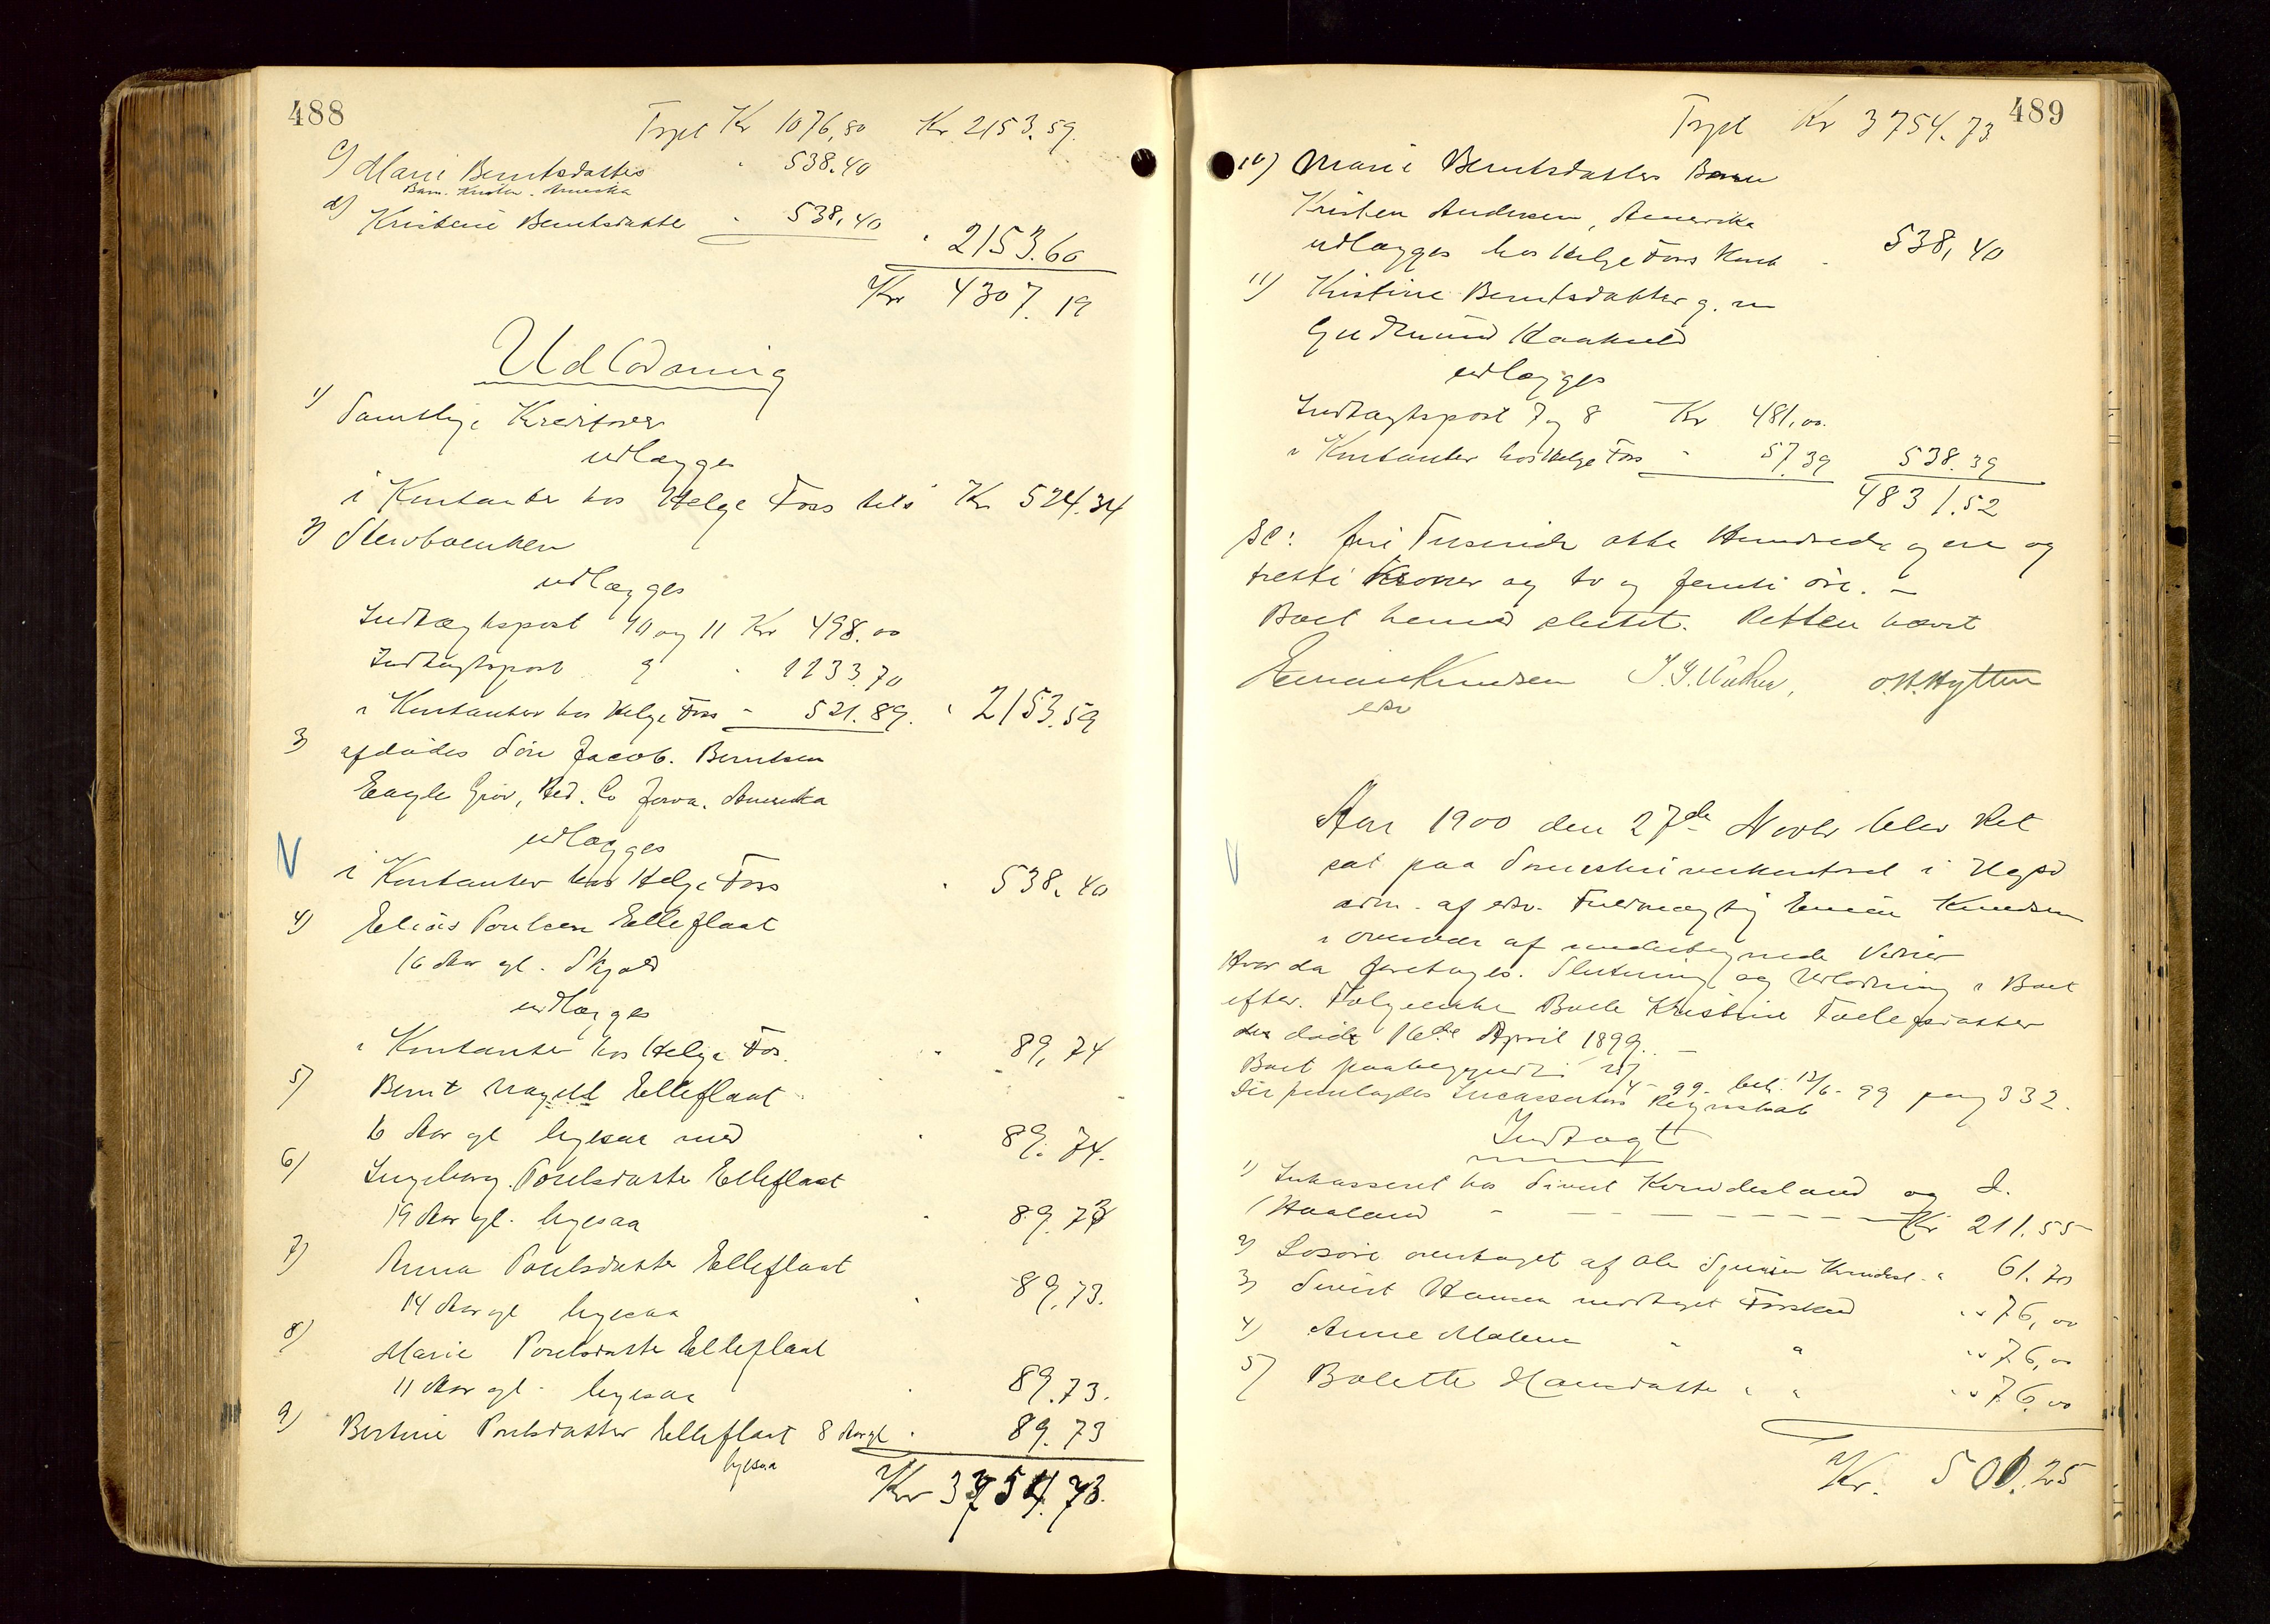 488
Trpt Kr 1076,80 Kr 2153.59.
c) Marie Berntsdatters " 538.40
Barn. Kristen. Amerika
d) Kristine Berntsdatter " 538,40
" 2153.60
Kr 4307.19
Udlodning
1) Samtlige Kreditorer
udlægges
i Kontanter hos Helge Foss tils Kr 524.34
2) Stervboenken
udlægges
Indtægtspost 10 og 11 Kr 498.00
Indtægtspost 9 " 1133.70
i Kontanter hos Helge Foss " 521.89. " 2153.59
3) afdødes Søn Jacob. Berntsen
Eagle Grov, Co Jowa. Amerika
udlægges
i Kontanter hos Helge Foss " 538.40
4) Elias Poulsen Elleflaat
16 Aar gl. Skjold
udlægges
i Kontanter hos Helge Fos. " 89,74
5) Bernt Elleflaat
6 Aar gl ligesaa med " 89.74.
6) Ingeborg Poulsdatter Elleflaat
19 Aar gl. ligesaa " 89.73
7) Anna Poulsdatter Elleflaat
14 Aar gl ligesaa " 89,73.
8) Marie Poulsdatter Elleflaat
11 Aar gl. ligesaa " 89.73.
9) Bertine Poulsdatter Elleflaat 8 Aar gl " 89.73
ligesaa
Kr 3754.73.
489
Trpt Kr 3754.73
10) Marie Berntsdatters Barn
Kristen Andersen, Amerika
udlægges hos Helge Foss Kont " 538,40
11) Kristine Berntsdatter g. m
Gudmund Haakuld
udlægges
Indtægtspost 7 og 8 Kr 481,00.
i Kontanter hos Helge Foss " 57.39 538.39
4831.52
sc: fire Tusinde otte Hundrede og en og
tretti Kroner og to og femti øre. –
Boet hermed sluttet. Retten hævet
Knudsen J. G. O. H. Hytten
edsv
Aar 1900 den 27de Novbr blev Ret
sat paa Sorenskriverkontoret i Hgsd
adm. af edsv. Fuldmægtig Knudsen
i overvær af undertegnede Vidner
Hvor da foretoges. Slutning og Udlodning i Boet
efter. Kristine
der døde 16de April 1899. –
Boet paabegyndt 4 - 99. beh. 12/6 - 99 pag 332.
Der fremlagdes Incassators Regnskab
Indtægt
1) Inkasseret hos Sivert Kvindesland og S.
Haaland - - - - - - - Kr 211.55
2) Løsøre overtaget af Ole " 61.70
3) Sivert Hansen modtaget Forskud " " 76,00
4) Anne Malene " " " " 76,00
5) Bolette Hansdatter " " " " 76,00
Kr. 501.25